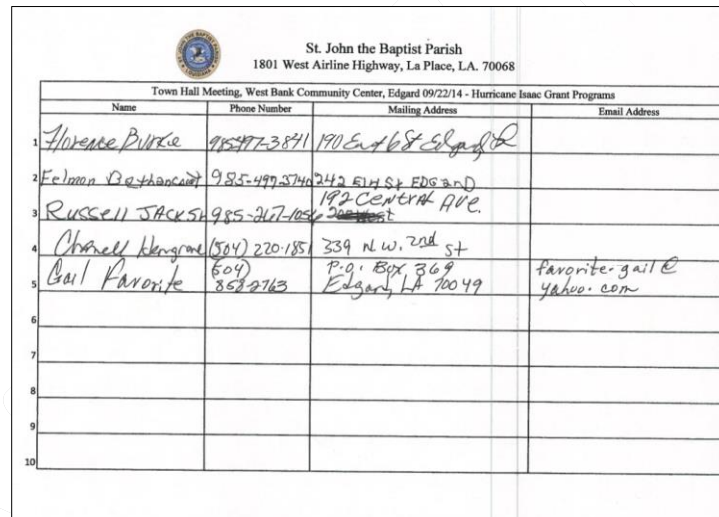 St. John the Baptist Parish
1801 West Airline Highway, La Place, LA. 70068
Town Hall Meeting, West Bank Community Center, Edgard 09/22/14 - Hurricane Isaac Grant Programs
Name Phone Number Mailing Address Email Address
1 Florence Burke 985497-3841 190 East 6 St Edgard
2 Felmon Bethancourt 985-497-3740 242 Elm St EDGard
192 Central Ave.
3 Russell JACKS 985-267-1056
4 Chanell (504) 220-1851 339 N.W. 2nd St
5 Gail Favorite (504) P.O. Box 369 favorite.gail@
858-2763 Edgard, LA 70049 yahoo.com
6
7
8
9
10